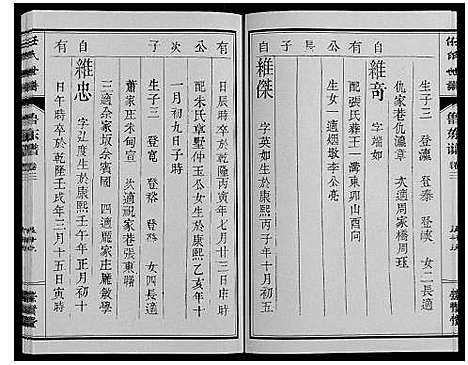 自有公長子
生子三 登瀛 登泰 登峽 女二長適
仇家巷仇瀛章 次適周家橋周珏
維奇 字端如
配張氏葬王一灣東卯山酉向
生女一適烟墩李公亮
維傑 字英如生於康熙丙子年十月初五
自有公次子
日辰時卒於乾隆丙寅年七月廿三日申時
配朱氏章墅仲玉公女生於康熙乙亥年十
一月初九日子時
生子二 登裕 登裕 女四長適
蕭家莊朱甸宣 次適祝家巷張東
三適余家墩余嘉國 四適羅家庄羅敘學
維忠 字 度生於康熙壬午年正月初十
日午時卒於乾隆壬戌年三月十五日寅時
任氏